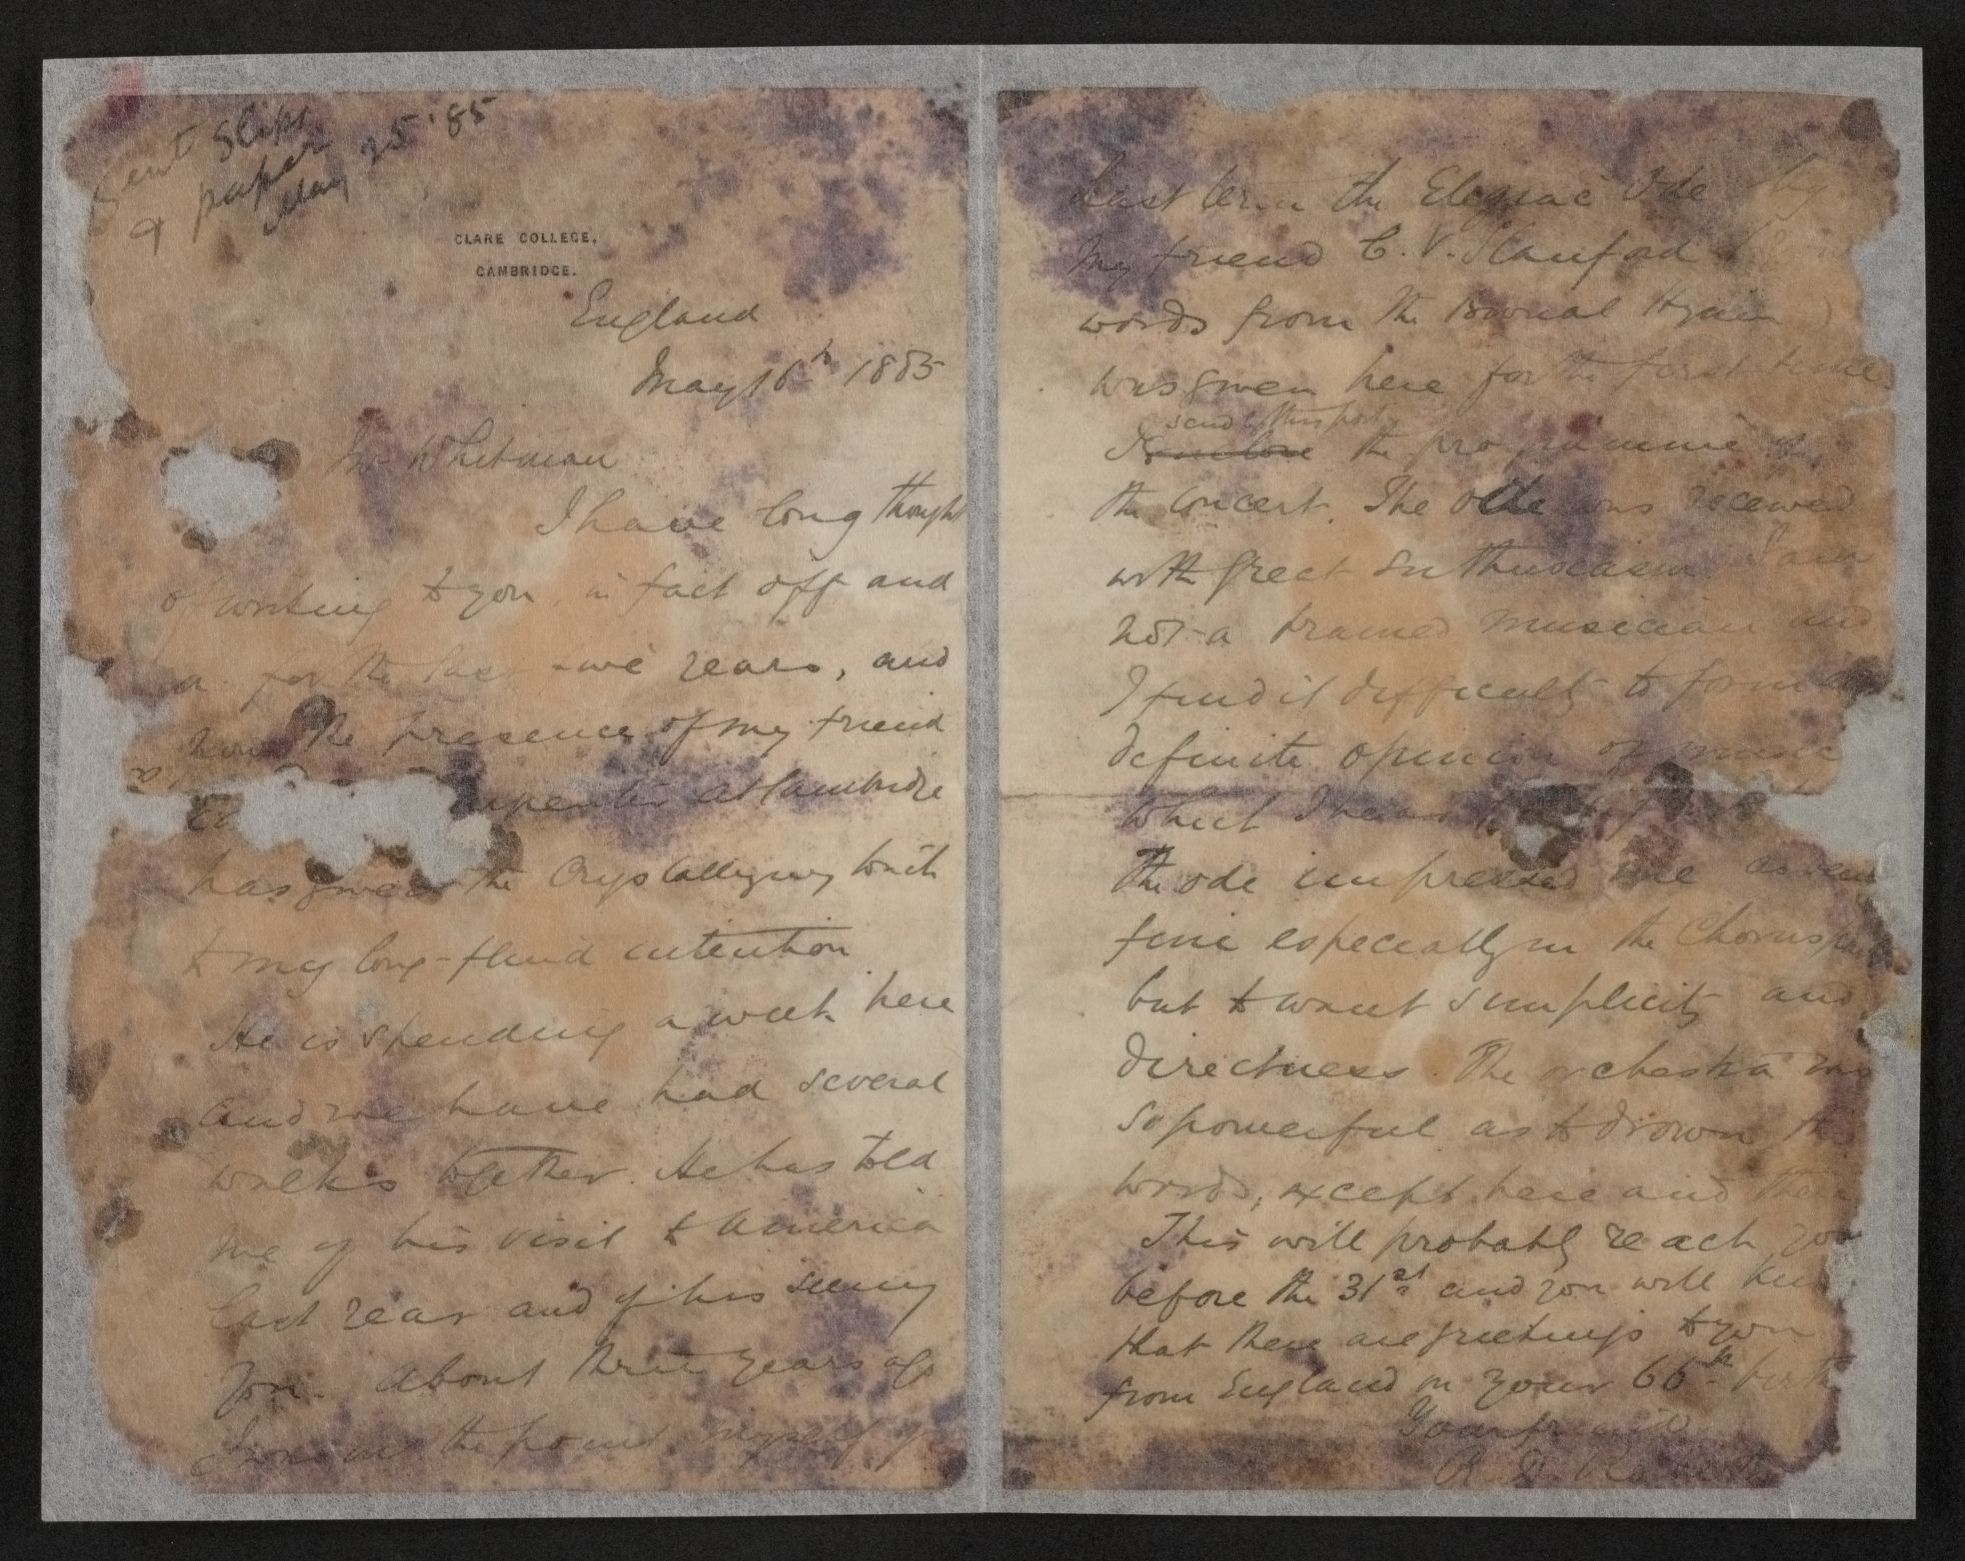 Sent Slips
& paper
May 25 '85
CLARE COLLEGE,
CAMBRIDGE.
England
May 16th 1885
Mr Whitman
I have long thought
of writing to you, in fact off and
for the last five years, and
now the presence of my friend
at Cambridge
has given the Crystallizing touch
to my long-fluid intention
He is spending a week here
and we have had several
walks together. He has told
me of his visit to America
last year and of his seeing
you. About three years ago
I was on the point myself of
Last term the Elegiac Ode by
my friend C. V. Stanford
words from the Burial Hymn)
was given here for the first time.
send by this post
I enclose the programme of
the Concert. The Ode was received
with great enthusiasm. I am
not a trained musician and
I find it difficult to form a
definite opinion of music
which I hear
the ode impressed me as
fine especially in the Chorus
but to want simplicity and
directness. The orchestra was
so powerful as to drown the
words, except here and there
This will probably reach you
before the 31st and you will
that there are greetings to you
from England on your 66th birth
Yours